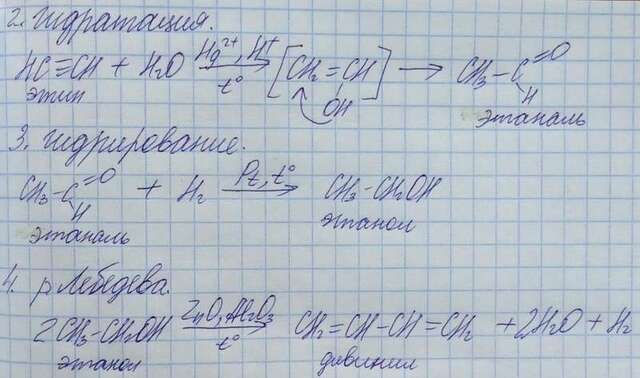 2. гидратация.
HC≡CH + H₂O Hg²⁺, H⁺ / t° → [CH₂=CH–OH] → CH₃–C(=O)–H
этин этаналь
3. гидрирование.
CH₃–C(=O)–H + H₂ Pt, t° → CH₃–CH₂OH
этаналь этанол
4. р. Лебедева.
2CH₃–CH₂OH ZnO, Al₂O₃ / t° → CH₂=CH–CH=CH₂ + 2H₂O + H₂
этанол дивинил